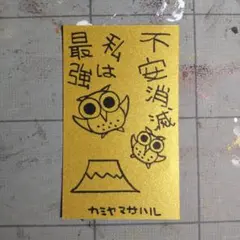 不安消滅
私は
最強
カミヤマサハル